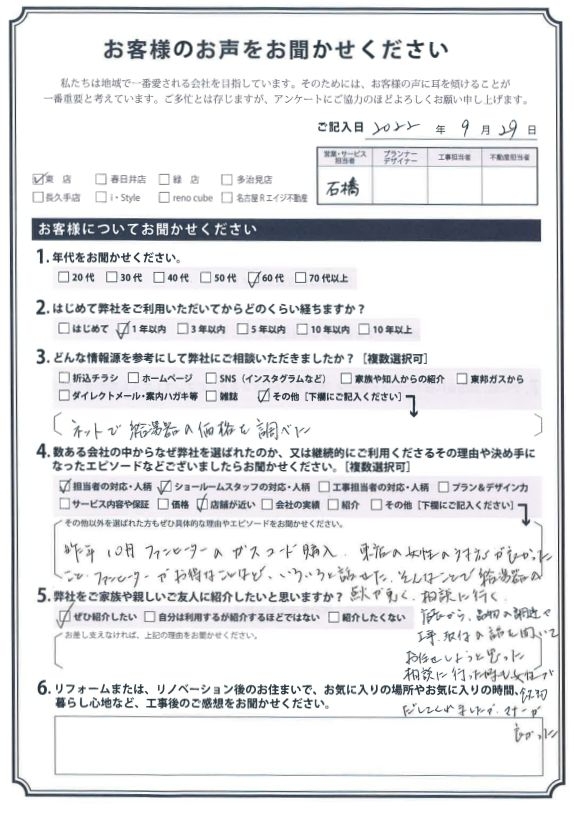 お客様のお声をお聞かせください
私たちは地域で一番愛される会社を目指しています。そのためには、お客様の声に耳を傾けることが
一番重要と考えています。ご多忙とは存じますが、アンケートにご協力のほどよろしくお願い申し上げます。
ご記入日 2022 年 9 月 29 日
営業・サービス担当者 プランナーデザイナー 工事担当者 不動産担当者
石橋
東 店 春日井店 緑 店 多治見店
長久手店 i・Style reno cube 名古屋Rエイジ不動産
お客様についてお聞かせください
1. 年代をお聞かせください。
20代 30代 40代 50代 60代 70代以上
2. はじめて弊社をご利用いただいてからどのくらい経ちますか？
はじめて 1年以内 3年以内 5年以内 10年以内 10年以上
3. どんな情報源を参考にして弊社にご相談いただきましたか？［複数選択可］
折込チラシ ホームページ SNS（インスタグラムなど） 家族や知人からの紹介 東邦ガスから
ダイレクトメール・案内ハガキ等 雑誌 その他［下欄にご記入ください］
ネットで給湯器の価格を調べた
4. 数ある会社の中からなぜ弊社を選ばれたのか、又は継続的にご利用くださるその理由や決め手に
なったエピソードなどございましたらお聞かせください。［複数選択可］
担当者の対応・人柄 ショールームスタッフの対応・人柄 工事担当者の対応・人柄 プラン＆デザイン力
サービス内容や保証 価格 店舗が近い 会社の実績 紹介 その他［下欄にご記入ください］
その他以外を選ばれた方もぜひ具体的な理由やエピソードをお聞かせください。
昨年10月ファンヒーターのガスコード購入、東店の女性の対応が良かった
こと、ファンヒーターがお得なことなど、いろいろと話せた。そんなことで給湯器の
点火が悪く、相談に行く。
5. 弊社をご家族や親しいご友人に紹介したいと思いますか？
ぜひ紹介したい 自分は利用するが紹介するほどではない 紹介したくない
お差し支えなければ、上記の理由をお聞かせください。
店長から、品物の調達や
工事、取付の話を聞いて
お任せしようと思った
相談に行った時も女性が
だしてくれましたが、マナーが
良かった
6. リフォームまたは、リノベーション後のお住まいで、お気に入りの場所やお気に入りの時間、
暮らし心地など、工事後のご感想をお聞かせください。